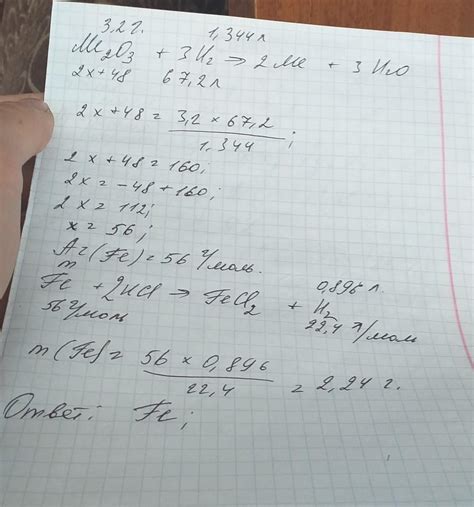 3,2 г. 1,344 л
Me₂O₃ + 3H₂ → 2Me + 3H₂O
2x+48 67,2 л
2x+48 = 3,2 × 67,2 / 1,344 ;
2x+48 = 160;
2x = -48 + 160;
2x = 112;
x = 56;
Ar(Fe) = 56 г/моль.
m 0,896 л.
Fe + 2HCl → FeCl₂ + H₂
56 г/моль 22,4 л/моль
m(Fe) = 56 × 0,896 / 22,4 = 2,24 г.
Ответ: Fe;